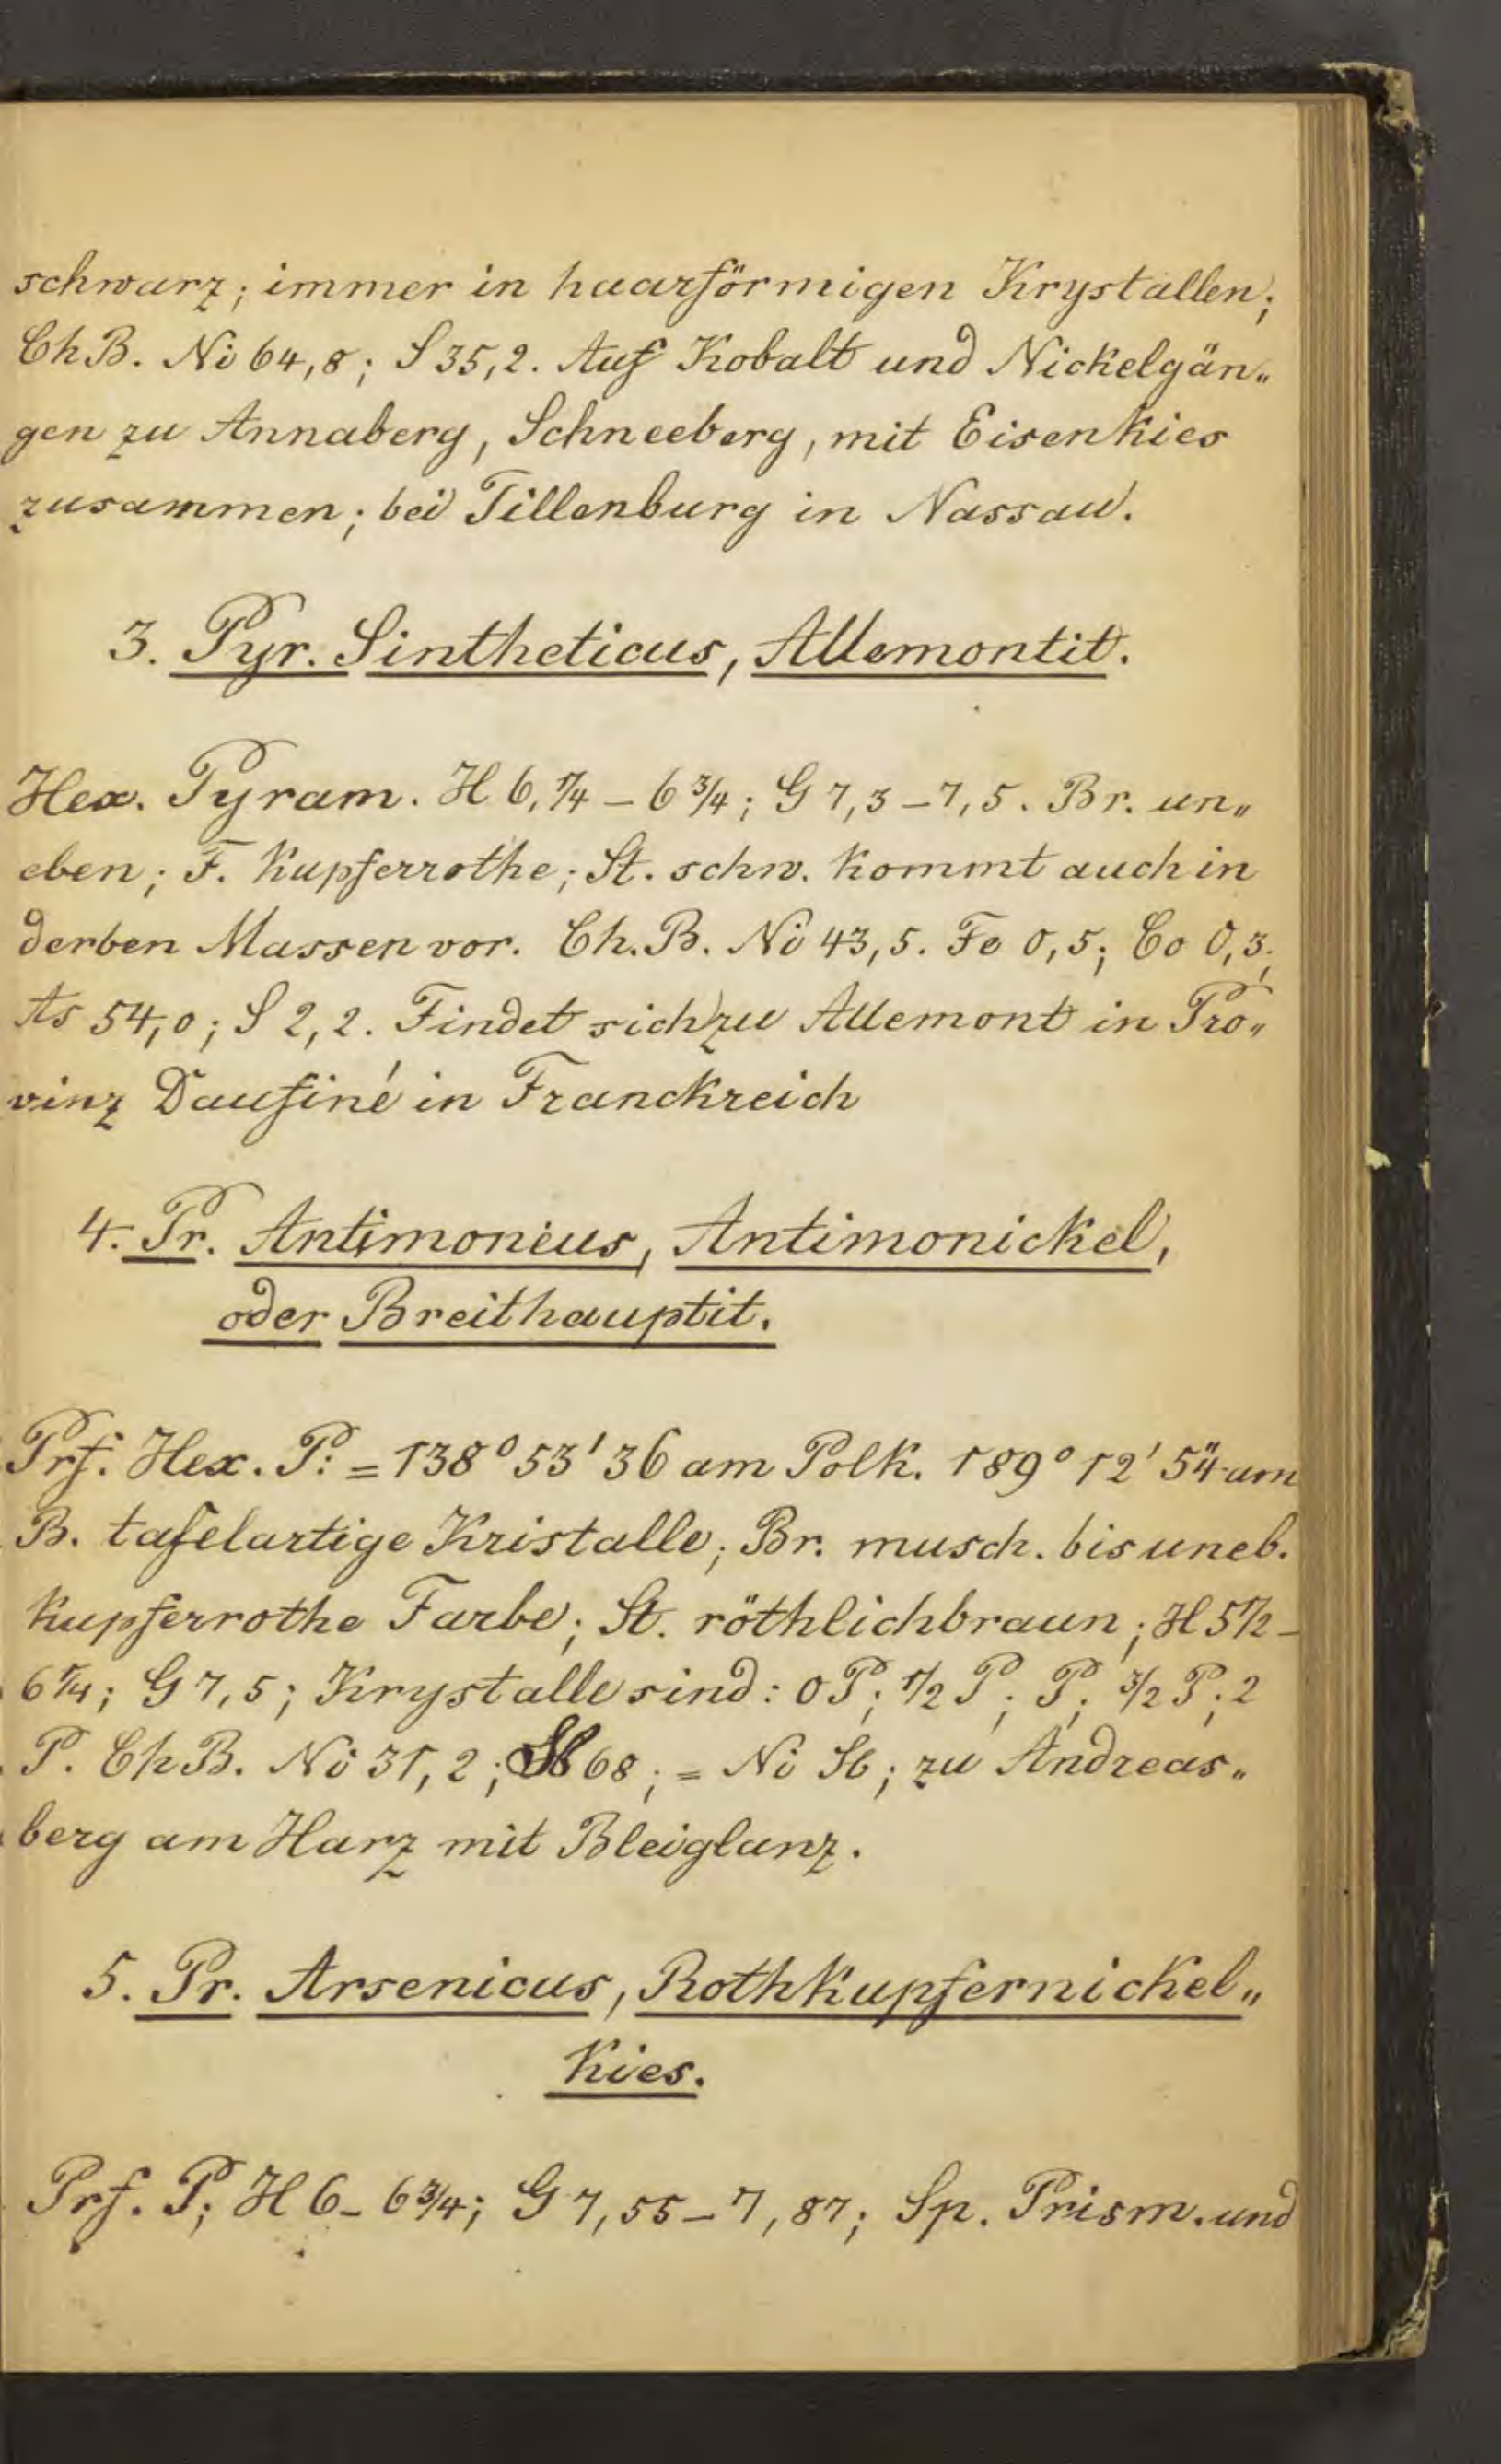 schwarz; immer in haarförmigen Krystallen;
Ch B. Ni 64,8; S 35,2. Auf Kobalt und Nickelgän„
gen zu Annaberg, Schneeberg, mit Eisenkies
zusammen; bei Tillenburg in Nassau.
3. Pyr. Sintheticus, Allemontit.
Hex. Pyram. H 6,1/4 – 6 3/4; G 7,3 – 7,5. Br. un„
eben; F. Kupferrothe; St. schw. kommt auch in
derben Massen vor. Ch. B. Ni 43,5. Fe 0,5; Co 0,3;
As 54,0; S 2,2. Findet sich zu Allemont in Pro„
vinz Daufiné in Franckreich
4. Pr. Antimoneus, Antimonickel,
oder Breithauptit.
Prf. Hex. P: = 138° 53' 36 am Polk. 189° 12' 54" am
B. tafelartige Kristalle; Br. musch. bis uneb.
kupferrothe Farbe; St. röthlichbraun; H 5 1/2 –
6 1/4; G 7,5; Krystalle sind: 0P; 1/2 P; P; 3/2 P; 2
P. Ch B. Ni 31,2; Sb 68; = Ni Sb; zu Andreas„
berg am Harz mit Bleiglanz.
5. Pr. Arsenicus, Rothkupfernickel„
kies.
Prf. P; H 6 – 6 3/4; G 7,55 – 7,87; Sp. Prism. und